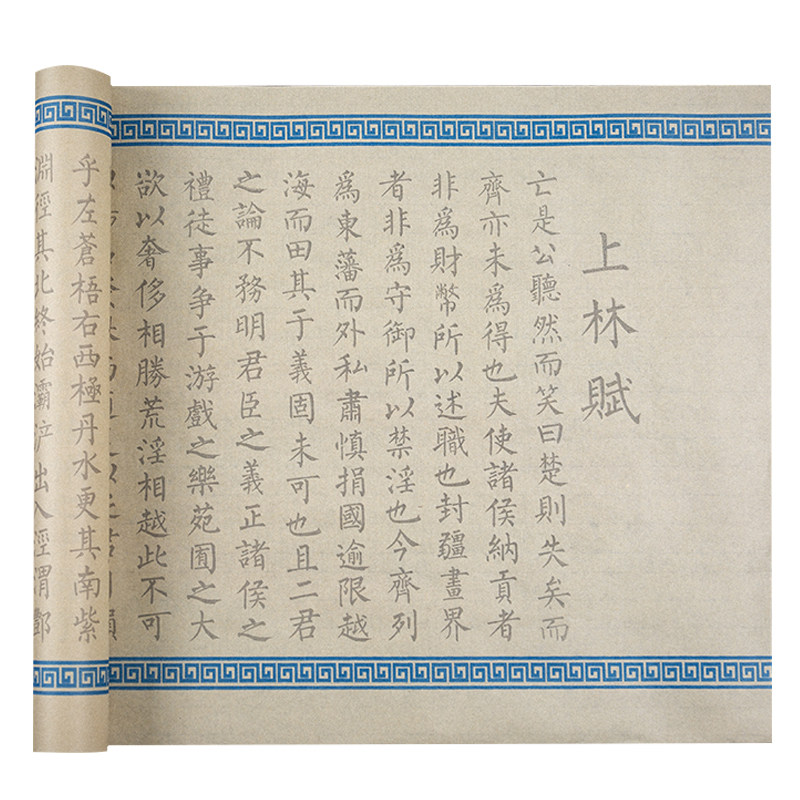 上林賦
亡是公聽然而笑曰楚則失矣而
齊亦未爲得也夫使諸侯納貢者
非爲財幣所以述職也封疆畫界
者非爲守御所以禁淫也今齊列
爲東藩而外私肅慎捐國逾限越
海而田其于義固未可也且二君
之論不務明君臣之義正諸侯之
禮徒事争于游戲之樂苑囿之大
欲以奢侈相勝荒淫相越此不可
乎左蒼梧右西極丹水更其南紫
淵徑其北終始灞浐出入涇渭酆